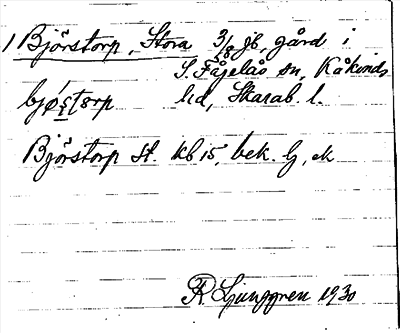 1 Björstorp, Stora 3/8 jb. gård i
S. Fågelås sn, Kåkinds
bjøstorp hd, Skarab. l.
Björstorp St. kb 15, bek. G, ek
R Ljunggren 1930